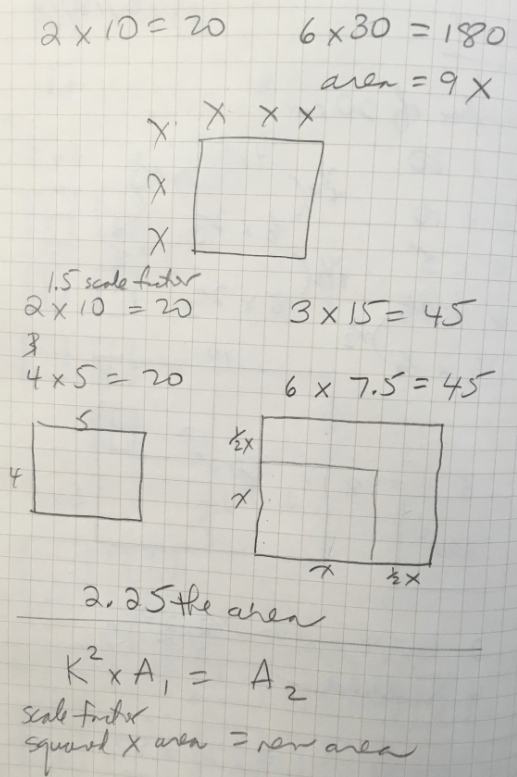 2 x 10 = 20 6 x 30 = 180
area = 9 x
x x x
x
x
x
1.5 scale factor
2 x 10 = 20 3 x 15 = 45
3
4 x 5 = 20 6 x 7.5 = 45
5
4
½x
x
x ½x
2.25 the area
K² x A₁ = A₂
scale factor
squared x area = new area